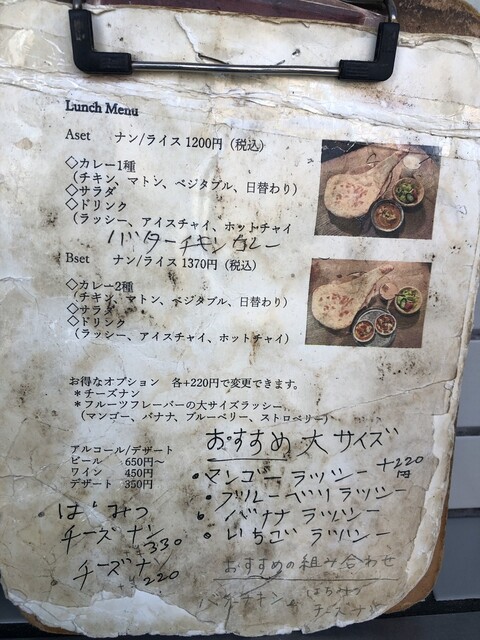 Lunch Menu
Aset ナン/ライス 1200円（税込）
◇カレー1種
（チキン、マトン、ベジタブル、日替わり）
◇サラダ
◇ドリンク
（ラッシー、アイスチャイ、ホットチャイ
バターチキンカレー
Bset ナン/ライス 1370円（税込）
◇カレー2種
（チキン、マトン、ベジタブル、日替わり）
◇サラダ
◇ドリンク
（ラッシー、アイスチャイ、ホットチャイ）
お得なオプション 各+220円で変更できます。
＊チーズナン
＊フルーツフレーバーの大サイズラッシー
（マンゴー、バナナ、ブルーベリー、ストロベリー）
アルコール/デザート
ビール 650円～
ワイン 450円
デザート 350円
はちみつ
チーズナン
330
チーズナン
220
おすすめ大サイズ
・マンゴーラッシー +220円
・ブルーベリラッシー
・バナナラッシー
・いちごラッシー
おすすめの組み合わせ
バターチキン
はちみつ
チーズナン